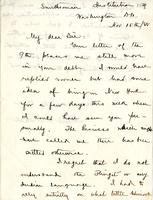 Smithsonian Institution
Washington D.C.
Nov 15th/
My dear Sir:
Your letter of the
9th places me still more
in your debt. I would have
replied sooner but had some
idea of being in New York
for a few days this week when
I could have seen you per-
sonally. The business which
had called me there has been
settled otherwise.
I regret that I do not
understand the or any
Indian language. I had to
rely entirely on what little